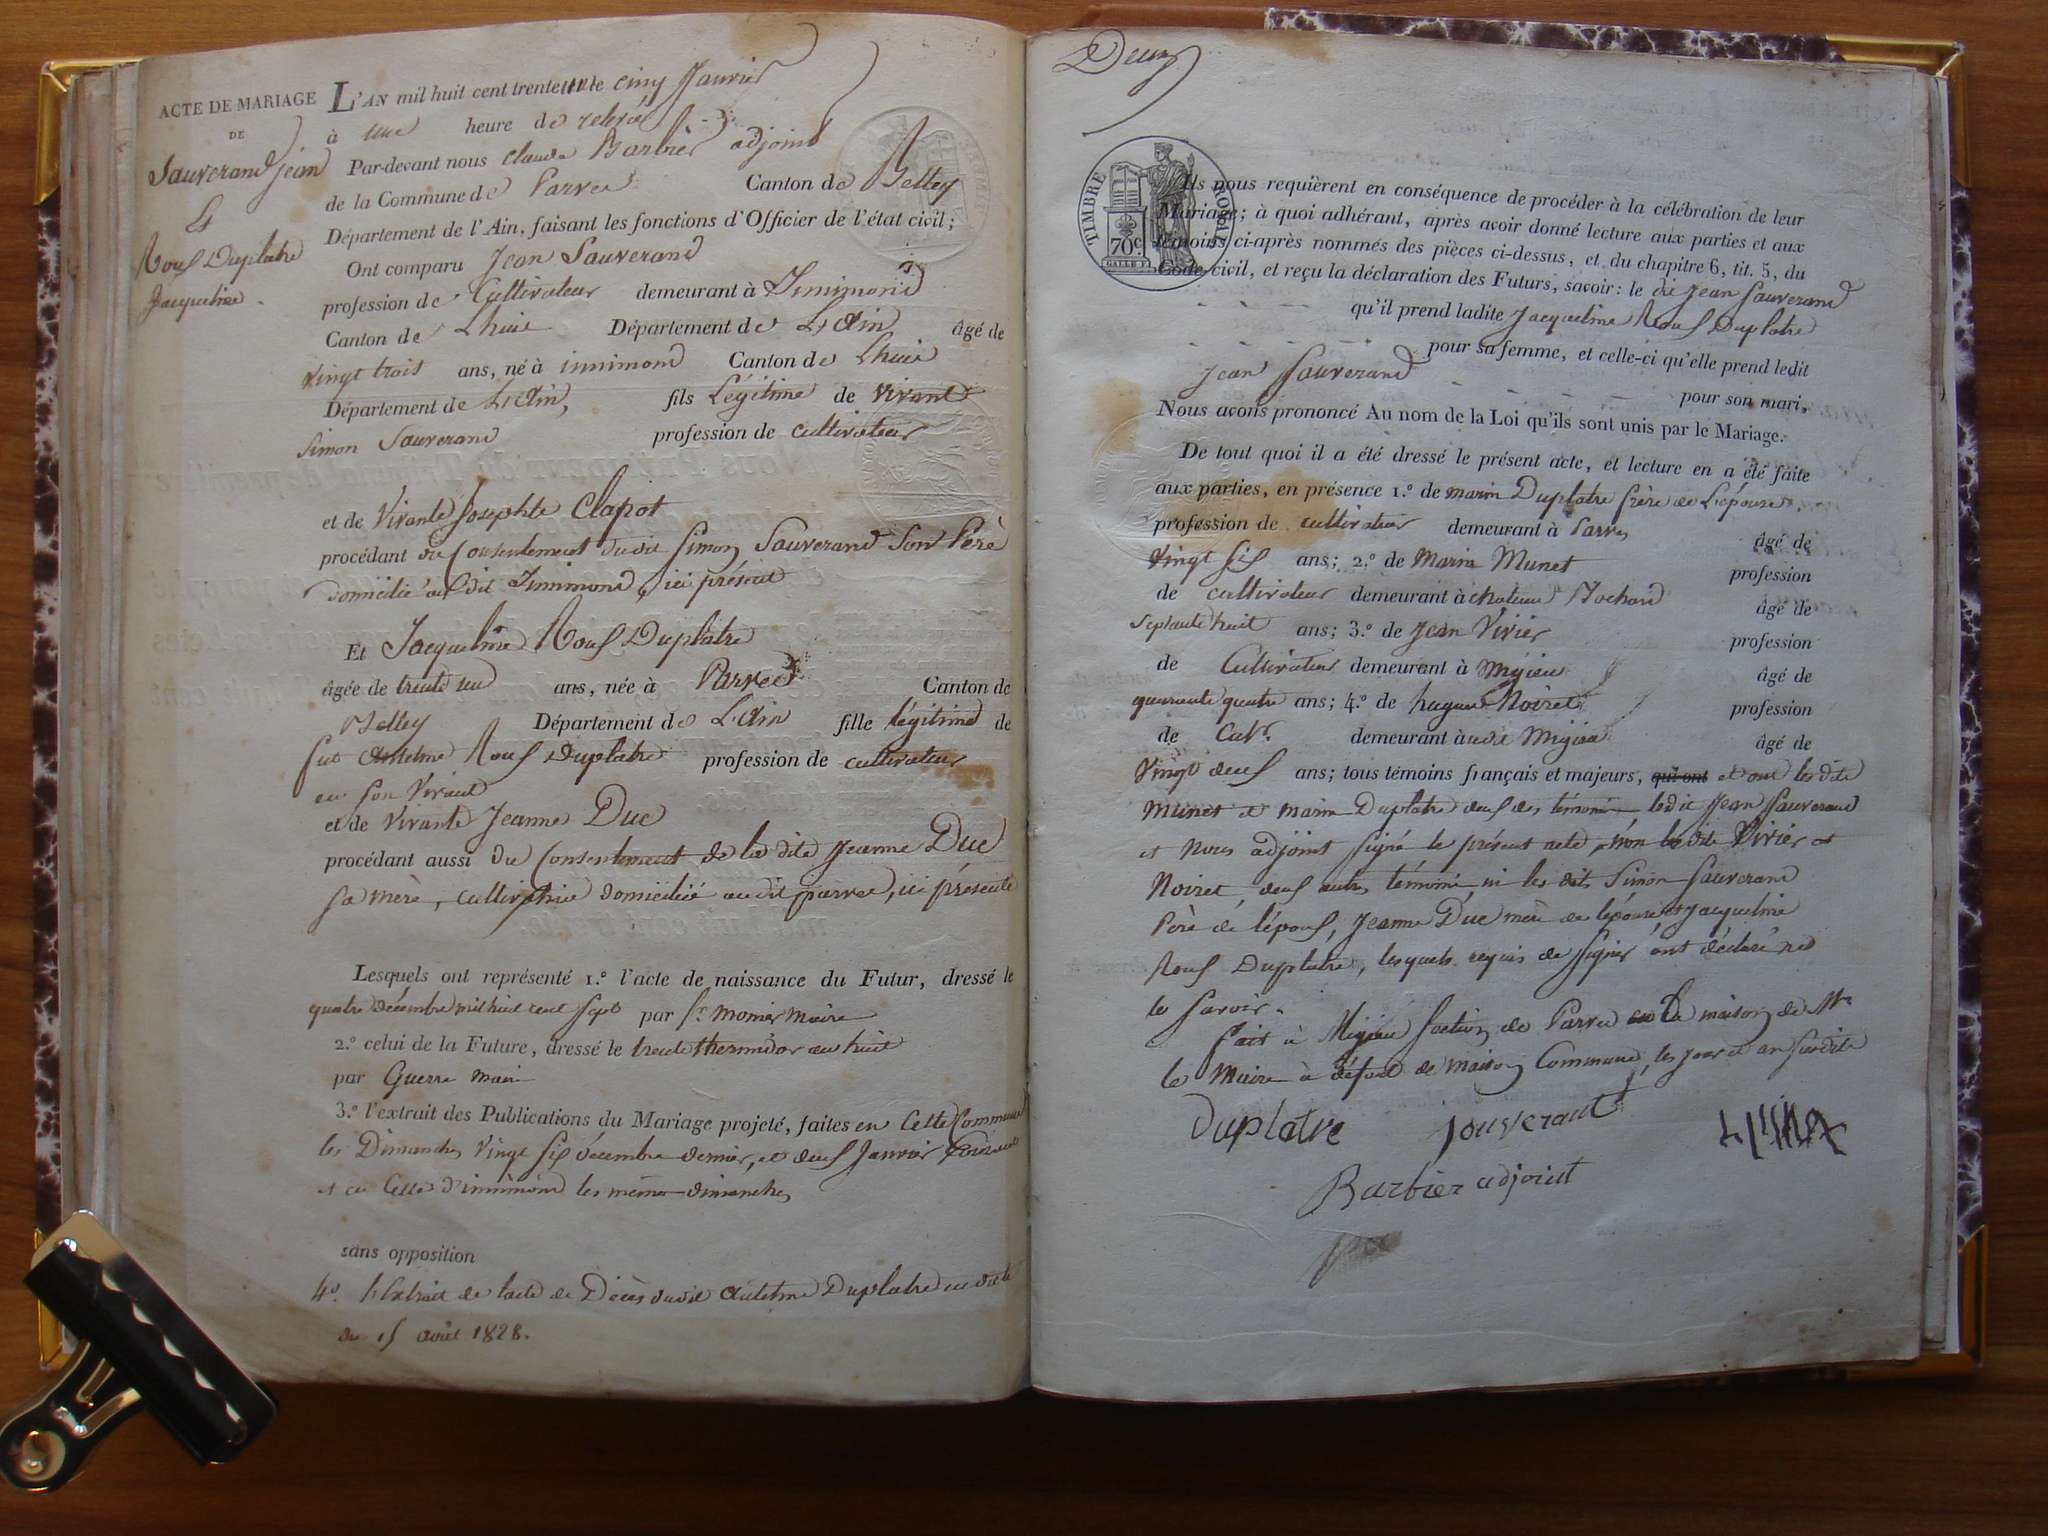 ACTE DE MARIAGE
DE
Sauverand jean
&
Roux Duplatre
Jacqueline
L'AN mil huit cent trente un le cinq Janvier
à une heure de relevé
Par-devant nous Claude Barbier adjoint
de la Commune de Parves Canton de Belley
Département de l'Ain, faisant les fonctions d'Officier de l'état civil;
Ont comparu Jean Sauverand
profession de Cultivateur demeurant à Innimond
Canton de Lhuis Département de L'Ain âgé de
vingt trois ans, né à innimond Canton de Lhuis
Département de L'Ain, fils Légitime de vivant
Simon Sauverand profession de cultivateur
et de Vivante Josephte Clapot
procédant du Consentement dudit Simon Sauverand Son Père
domicilié au dit Innimond, ici présent
Et Jacqueline Roux Duplatre
âgée de trente un ans, née à Parves Canton de
Belley Département de L'Ain fille légitime de
fut Antelme Roux Duplatre profession de cultivateur
en Son Vivant
et de Vivante Jeanne Duc
procédant aussi du Consentement de la dite Jeanne Duc
Sa mère, cultivatrice domiciliée audit parves, ici présente
Lesquels ont représenté 1.º l'acte de naissance du Futur, dressé le
quatre décembre mil huit cent sept par Sr. Monier Maire
2.º celui de la Future, dressé le trente thermidor an huit
par Guerre maire
3.º l'extrait des Publications du Mariage projeté, faites en Cette Commune
les Dimanches Vingt Six décembre dernier, et deux Janvier Courant
et en Celle d'innimond les mêmes dimanches
sans opposition
4º. l'Extrait de l'acte de Décès dudit Antelme Duplatre en date
du 15 août 1828.
Deux
TIMBRE ROYAL
70c.
GALLE F.
Ils nous requièrent en conséquence de procéder à la célébration de leur
Mariage; à quoi adhérant, après avoir donné lecture aux parties et aux
témoins ci-après nommés des pièces ci-dessus, et du chapitre 6, tit. 5, du
Code civil, et reçu la déclaration des Futurs, savoir: le dit Jean Sauverand
qu'il prend ladite Jacqueline Roux Duplatre
pour sa femme, et celle-ci qu'elle prend ledit
Jean Sauverand
pour son mari,
Nous avons prononcé Au nom de la Loi qu'ils sont unis par le Mariage.
De tout quoi il a été dressé le présent acte, et lecture en a été faite
aux parties, en présence 1.º de marin Duplatre frère de L'épouse
profession de cultivateur demeurant à Parves âgé de
Vingt six ans; 2.º de Marin Munet profession
de cultivateur demeurant à chateau Rochard âgé de
Septante huit ans; 3.º de Jean Vivier profession
de Cultivateur demeurant à Mijieu âgé de
quarante quatre ans; 4.º de hugues Noiret profession
de Cultr. demeurant à udit Mijieu âgé de
Vingt deux ans; tous témoins français et majeurs, qui ont et ont les dits
Munet et marin Duplatre deux des témoins, ledit Jean Sauverand
et Nous adjoint Signé le présent acte, non les dits Vivier et
Noiret, deux autres témoins ni les dits Simon Sauverand
Père de l'époux, Jeanne Duc mère de l'épouse et Jacqueline
Roux Duplatre, lesquels requis de Signer ont déclaré ne
le Savoir.
Fait à Mijieu Section de Parves en la maison de Mr
le Maire à défaut de maison Commune, les jour et an Susdits
Duplatre Souverant
Barbier adjoint